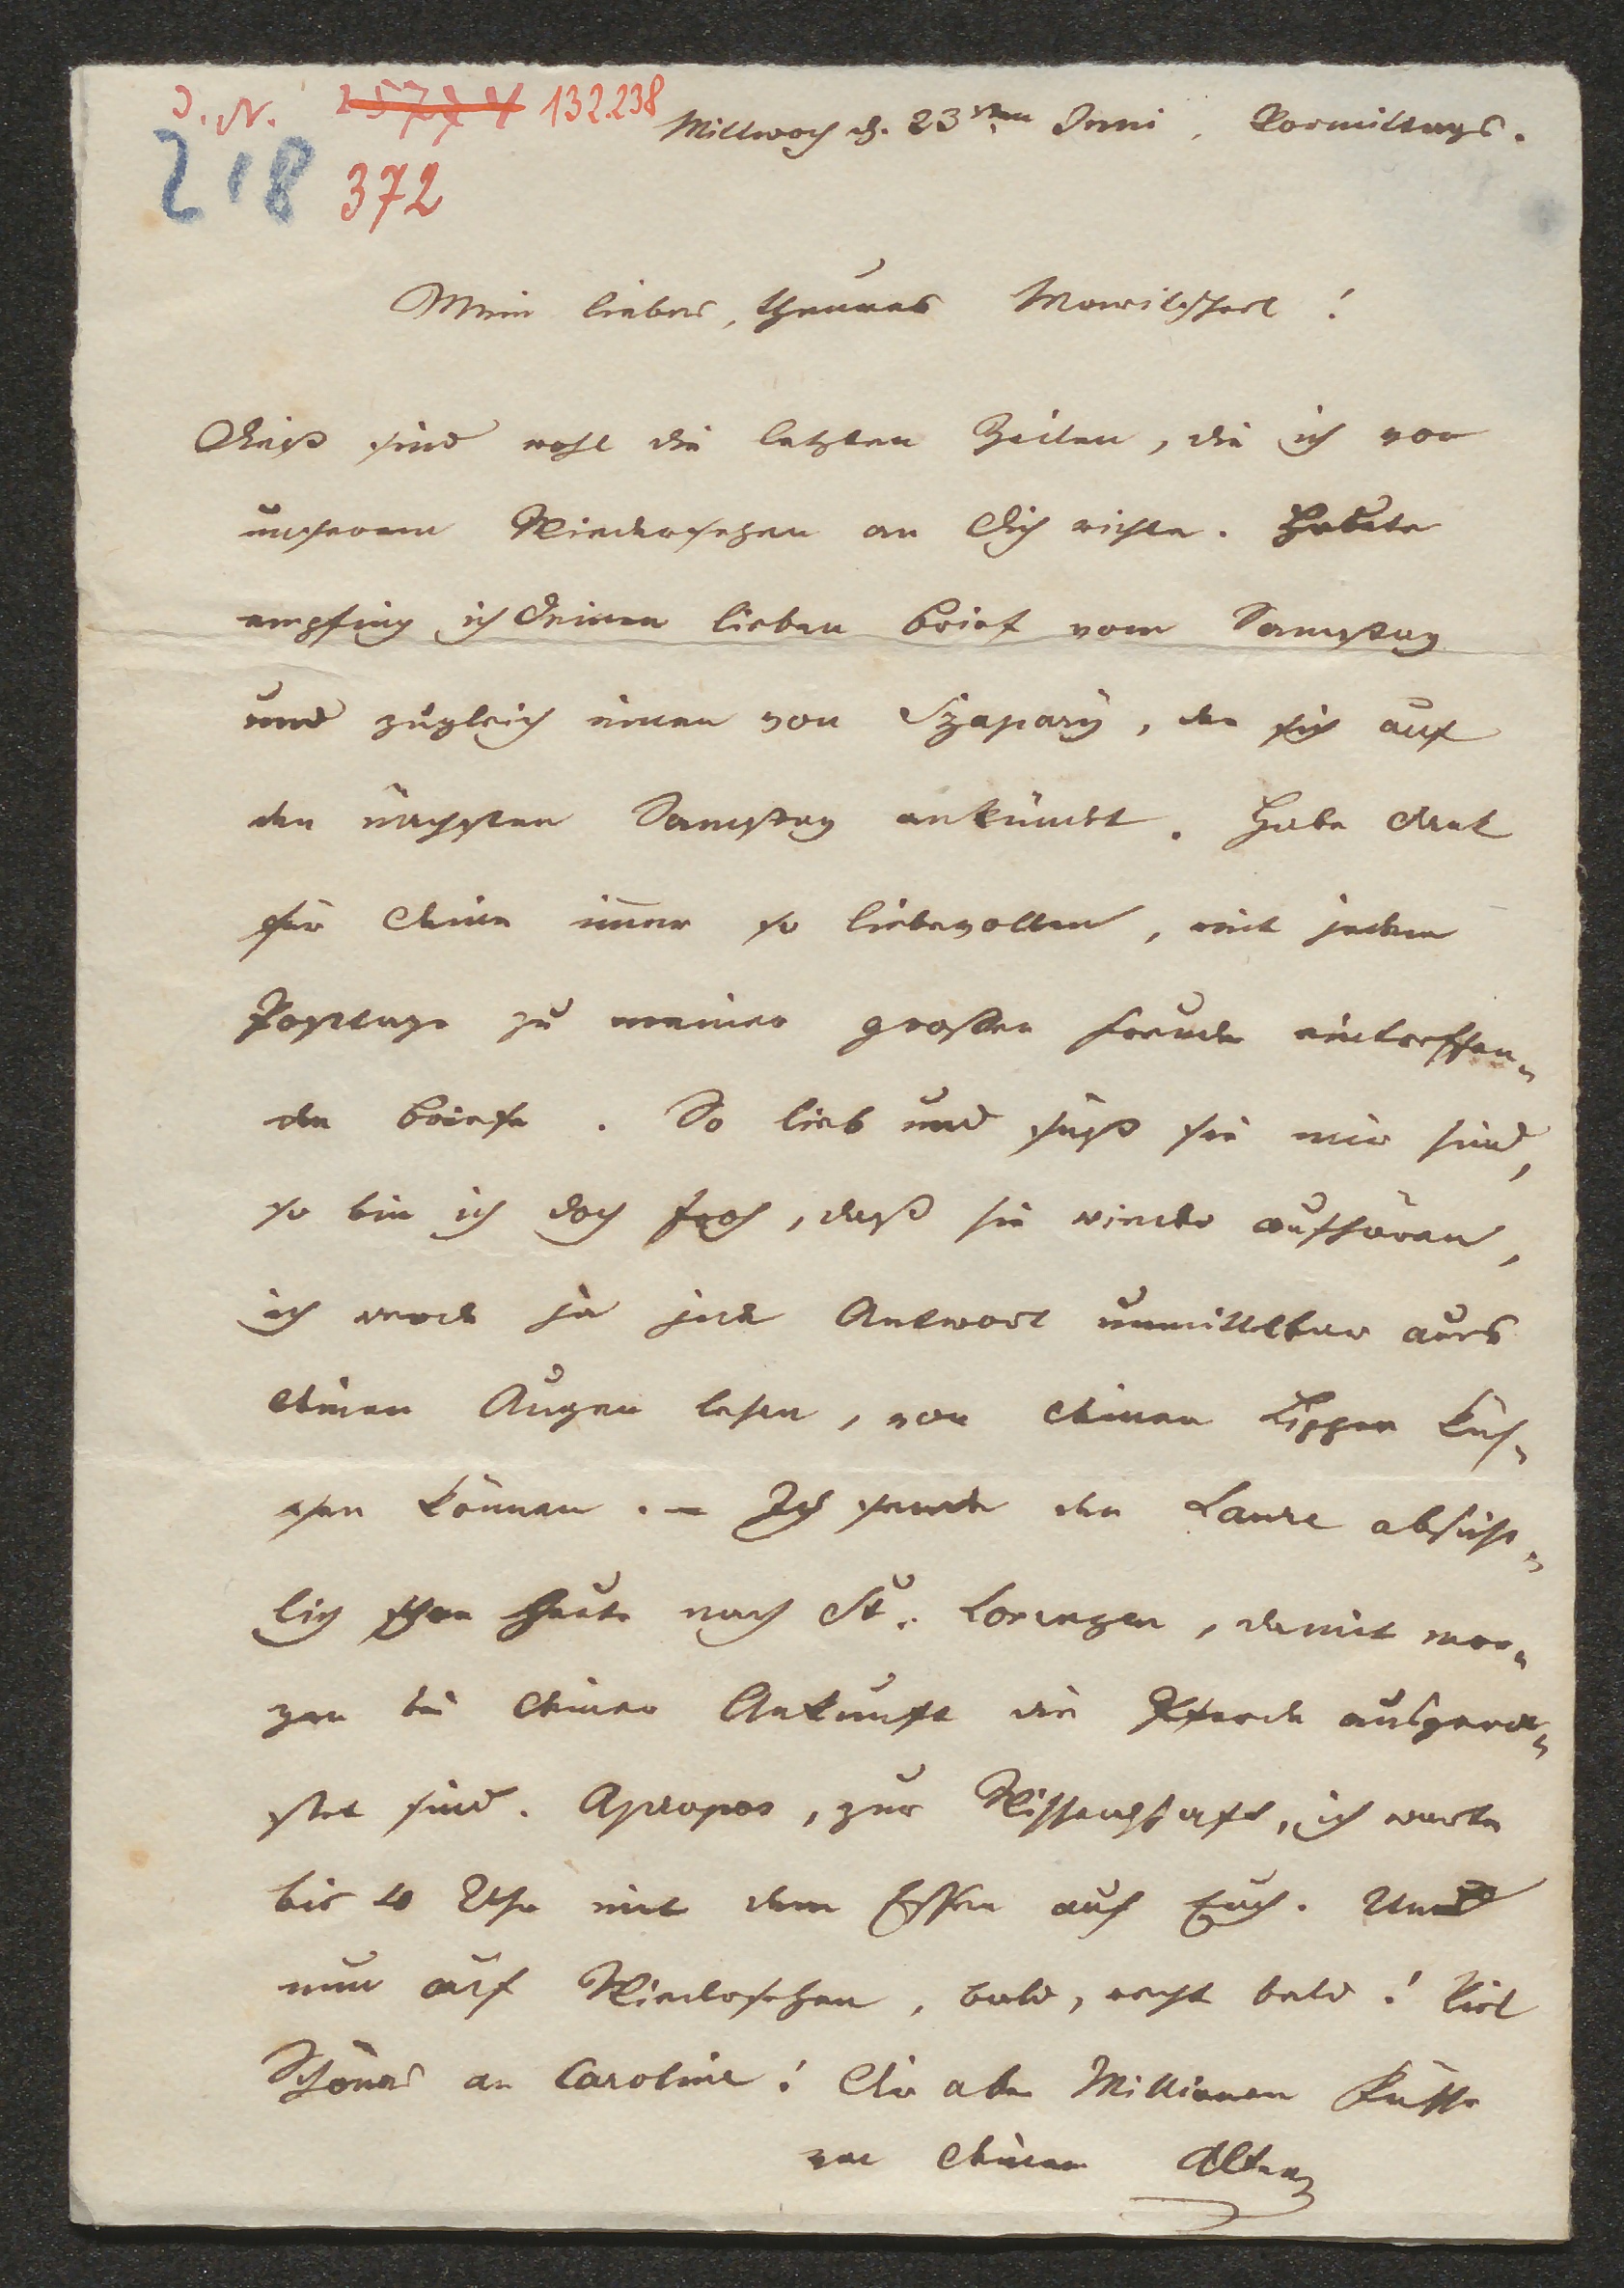 J. N. 25774 132.238
218 372
Mittwoch d. 23sten Juni, Vormittags.
Mein liebes, theures Moritzherl!
Dieß sind wohl die letzten Zeilen, die ich vor
unserem Wiedersehen an Dich richte. Heute
empfing ich Deinen lieben Brief vom Samstag
und zugleich einen von Szapary, der sich auf
den nächsten Samstag ankündt. Habe Dank
für Deine immer so liebevollen, mit jedem
Posttage zu meiner großen Freude eintreffen-
den Briefe. So lieb und süß sie mir sind,
so bin ich doch froh, daß sie wieder aufhören,
ich werde ja jede Antwort unmittelbar aus
Deinen Augen lesen, von Deinen Lippen küs-
sen können. – Ich sende den Landl absicht-
lich schon heute nach St. Lorenzen, damit mor-
gen bei Deiner Ankunft die Pferde ausgera-
stet sind. Apropos, zur Wissenschaft, ich warte
bis 10 Uhr mit dem Essen auf Euch. Und
nun auf Wiedersehen, bald, recht bald! Viel
Schönes an Caroline! Dir aber Millionen Küsse
von Deinem Alten